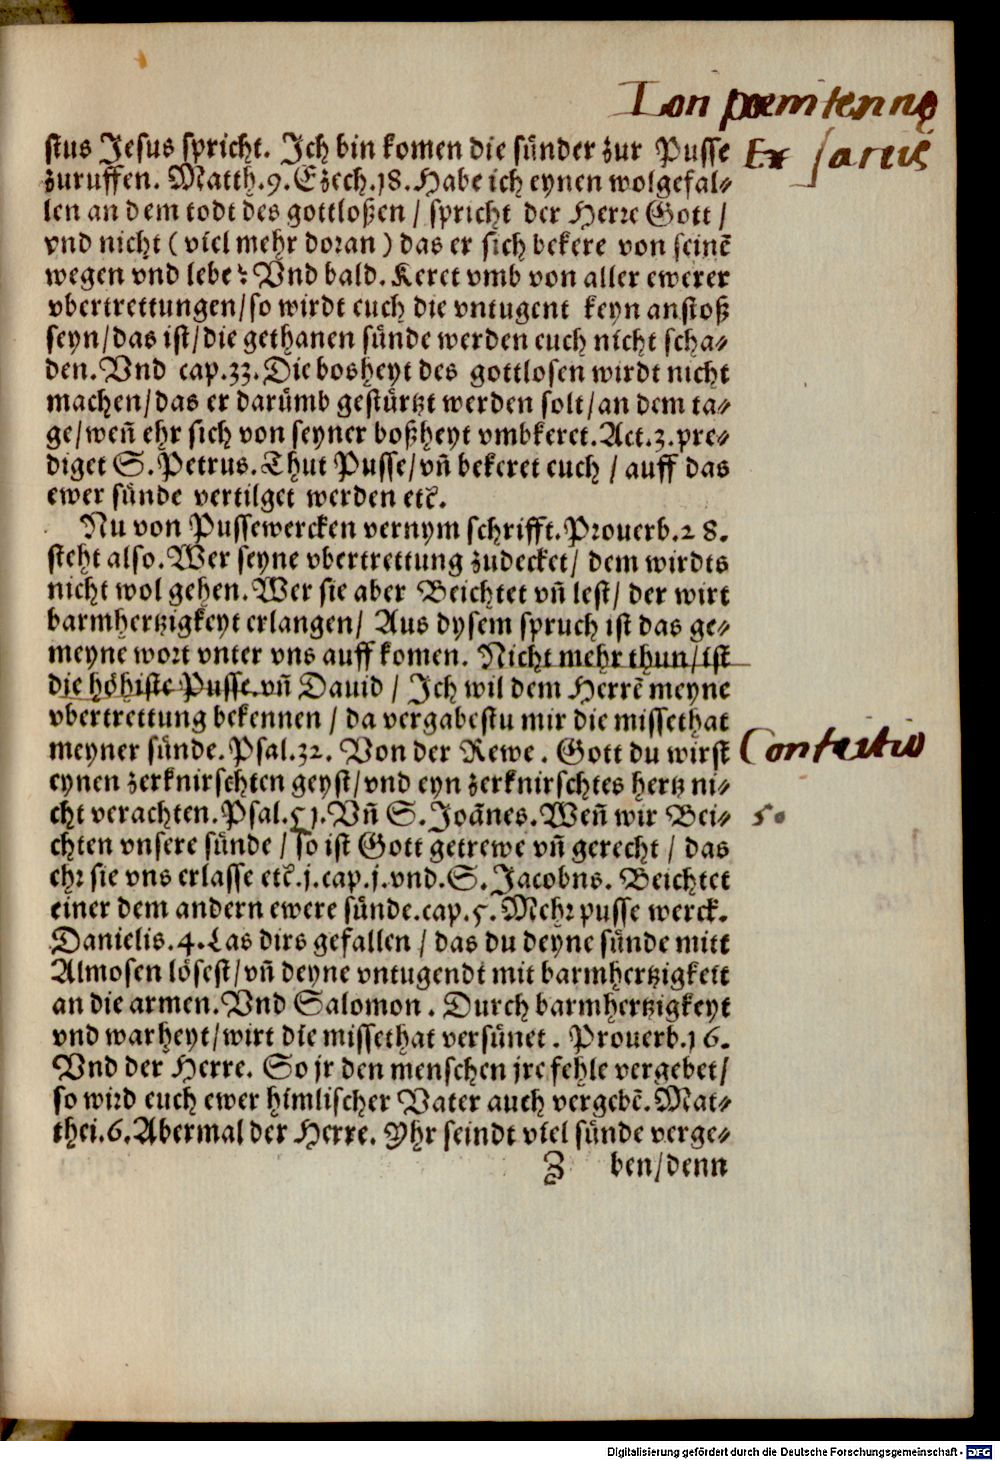 Ion poenitennę
stus Jesus spricht. Ich bin komen die sünder zur Pusse
Ex
zuruffen. Matth.9. Ezech.18. Habe ich eynen wolgefal⸗
len an dem todt des gottloßen / spricht der Herre Gott /
vnd nicht ( viel mehr doran ) das er sich bekere von seinē
wegen vnd lebe? Vnd bald. Keret vmb von aller ewerer
vbertrettungen / so wirdt euch die vntugent keyn anstoß
seyn / das ist / die gethanen sünde werden euch nicht scha⸗
den. Vnd cap.33. Die bosheyt des gottlosen wirdt nicht
machen / das er darümb gestürtzt werden solt / an dem ta⸗
ge / weñ ehr sich von seyner boßheyt vmbkeret. Act.3. pre⸗
diget S. Petrus. Thut Pusse / vñ bekeret euch / auff das
ewer sünde vertilget werden etc.
Nu von Pussewercken vernym schrifft. Prouerb.28.
steht also. Wer seyne vbertrettung zudecket / dem wirdts
nicht wol gehen. Wer sie aber Beichtet vñ lest / der wirt
barmhertzigkeyt erlangen / Aus dysem spruch ist das ge⸗
meyne wort vnter vns auff komen. Nicht mehr thun / ist
die höhiste Pusse. vñ Dauid / Ich wil dem Herrē meyne
vbertrettung bekennen / da vergabestu mir die missethat
meyner sünde. Psal.32. Von der Rewe. Gott du wirst
Contritio
eynen zerknirschten geyst / vnd eyn zerknirschtes hertz ni⸗
cht verachten. Psal.51. Vñ S. Joānes. Weñ wir Bei⸗
50
chten vnsere sünde / so ist Gott getrewe vñ gerecht / das
ehr sie vns erlasse etc. j. cap. j. vnd. S. Jacobns. Beichtet
einer dem andern ewere sünde. cap.5. Mehr pusse werck.
Danielis.4. Las dirs gefallen / das du deyne sünde mitt
Almosen lösest / vñ deyne vntugendt mit barmhertzigkeit
an die armen. Vnd Salomon. Durch barmhertzigkeyt
vnd warheyt / wirt die missethat versünet. Prouerb.16.
Vnd der Herre. So jr den menschen jre fehle vergebet /
so wird euch ewer himlischer Vater auch vergebē. Mat⸗
thei.6. Abermal der Herre. Yhr seindt viel sünde verge⸗
Z ben / denn
Digitalisierung gefördert durch die Deutsche Forschungsgemeinschaft - DFG